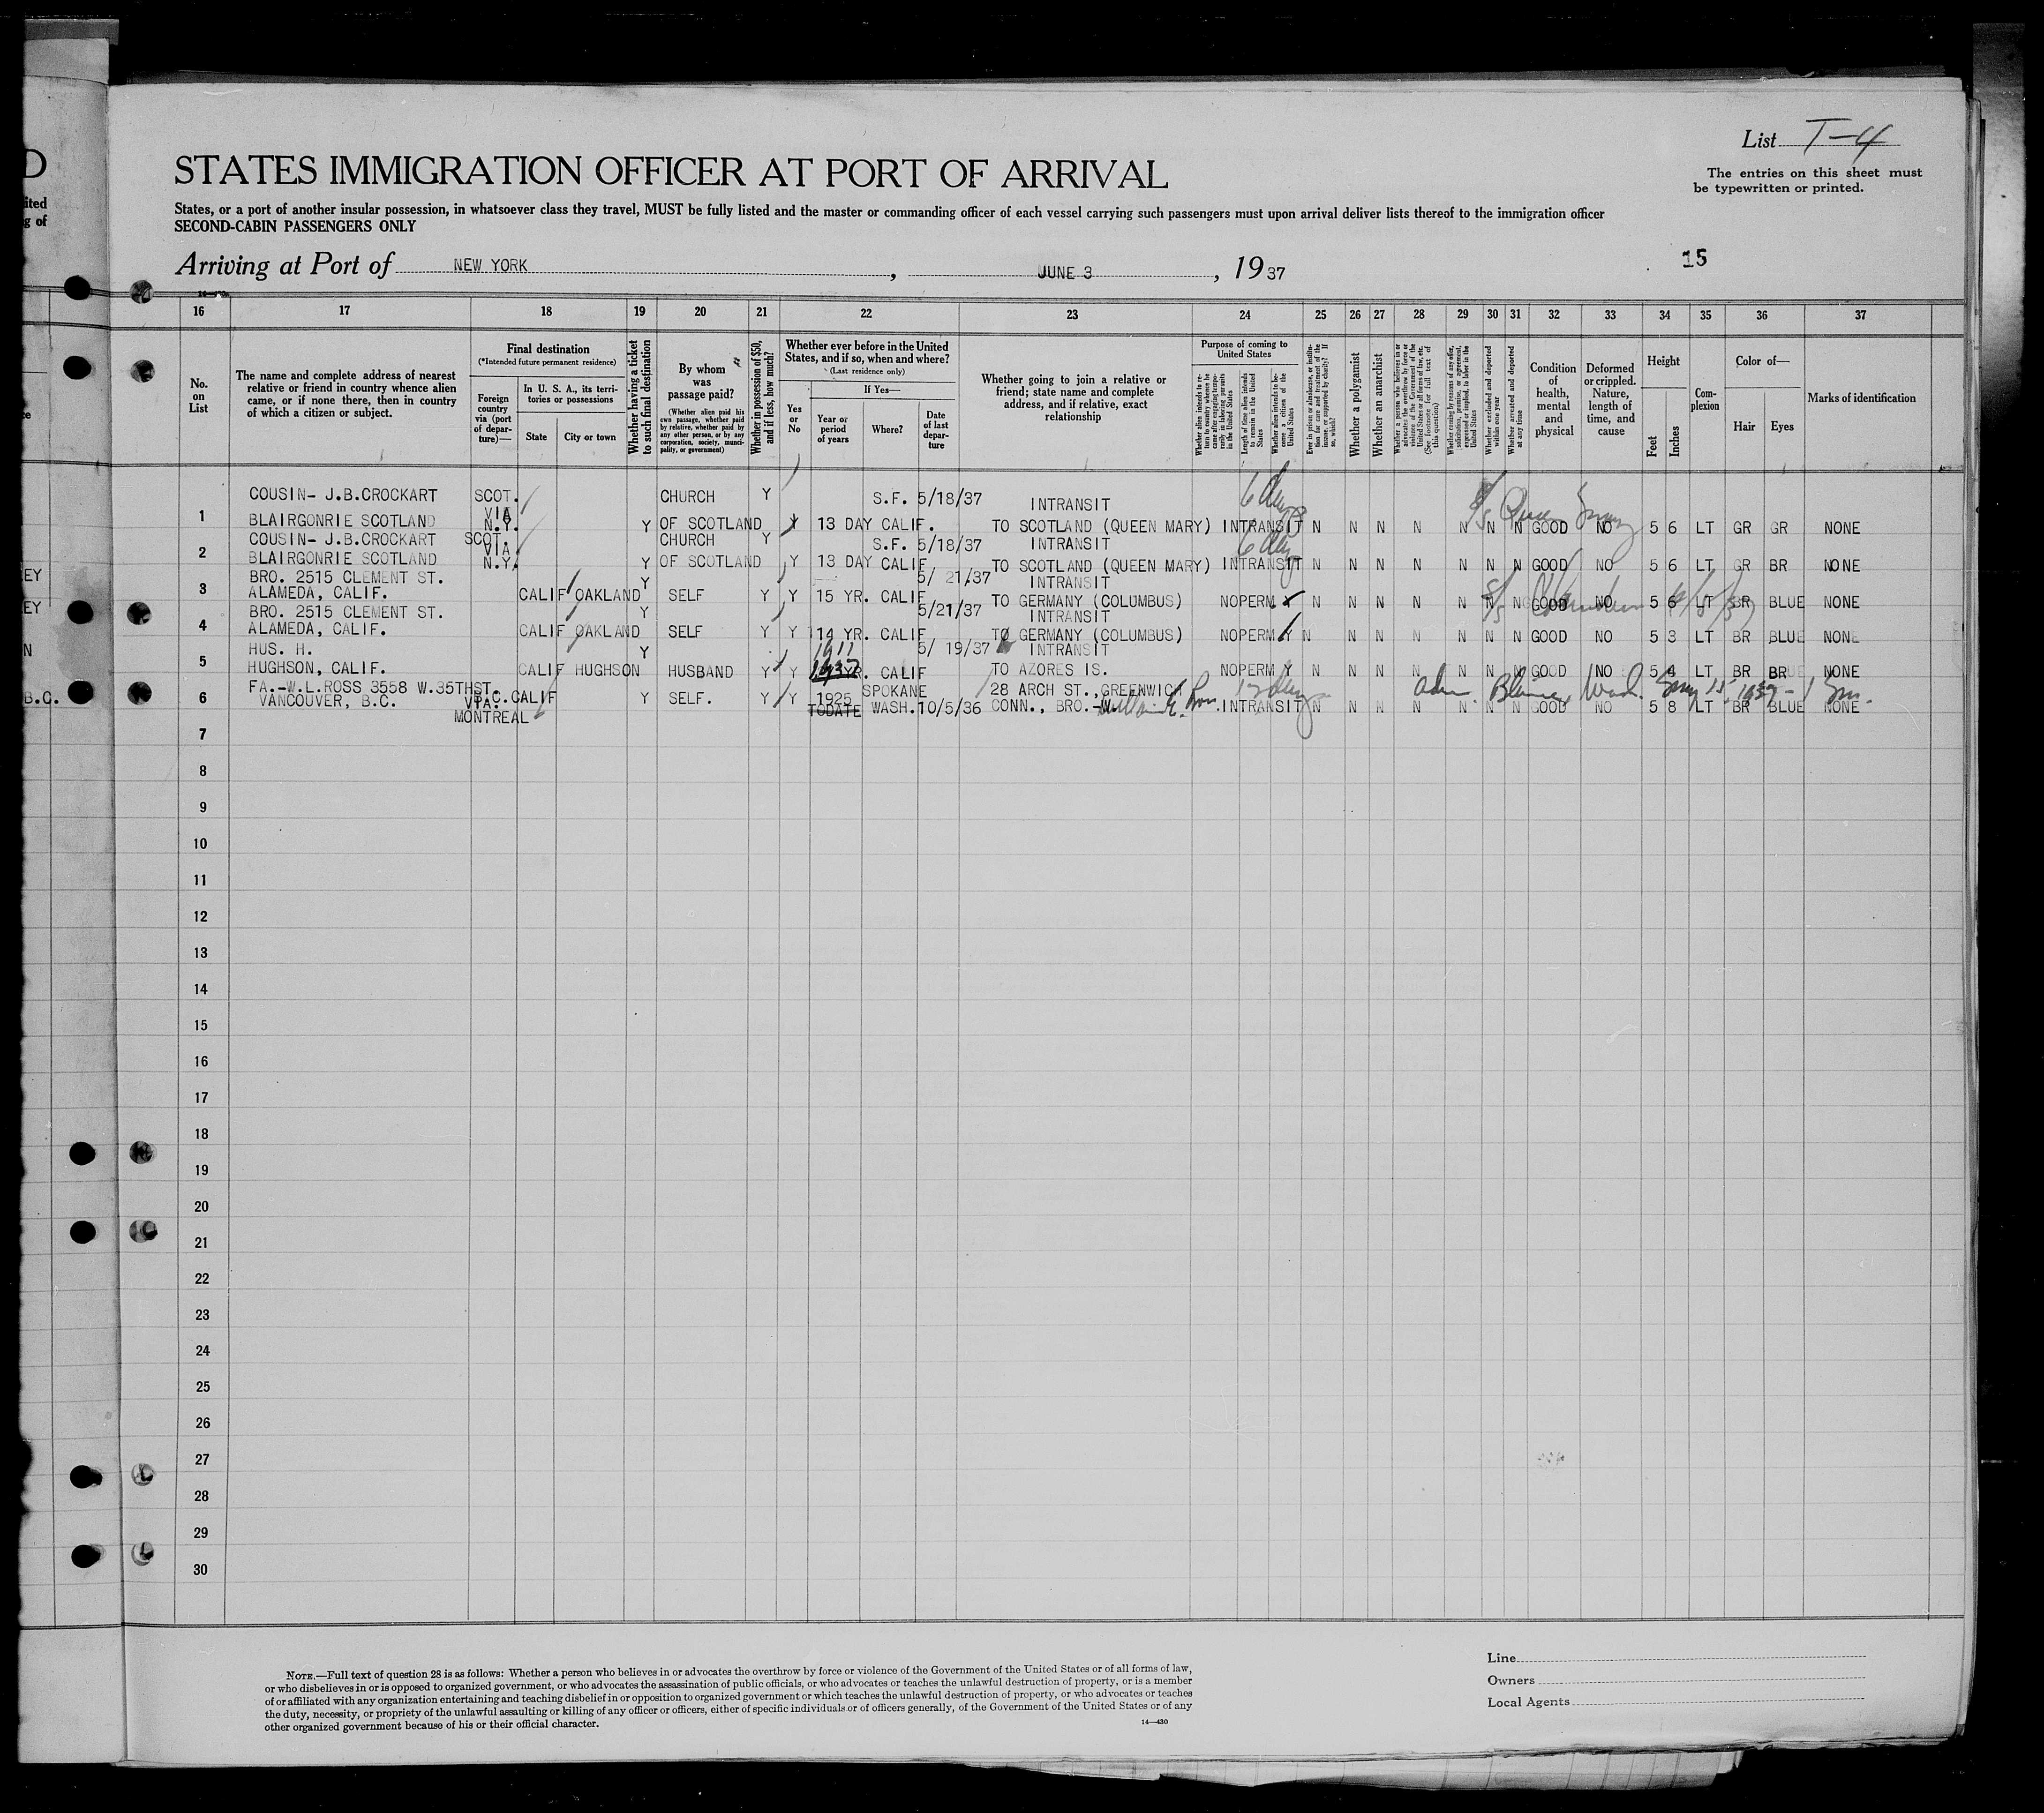 D
ited
g of
ce
EY
EY
N
B.C.
List T-4
The entries on this sheet must
be typewritten or printed.
STATES IMMIGRATION OFFICER AT PORT OF ARRIVAL
States, or a port of another insular possession, in whatsoever class they travel, MUST be fully listed and the master or commanding officer of each vessel carrying such passengers must upon arrival deliver lists thereof to the immigration officer
SECOND-CABIN PASSENGERS ONLY
Arriving at Port of NEW YORK , JUNE 3 , 19 37
15
16 17 18 19 20 21 22 23 24 25 26 27 28 29 30 31 32 33 34 35 36 37
No. on List
The name and complete address of nearest relative or friend in country whence alien came, or if none there, then in country of which a citizen or subject.
Final destination
(*Intended future permanent residence)
Foreign country via (port of departure)—
In U. S. A., its territories or possessions
State City or town
Whether having a ticket to such final destination
By whom was passage paid?
(Whether alien paid his own passage, whether paid by relative, whether paid by any other person, or by any corporation, society, municipality, or government)
Whether in possession of $50, and if less, how much?
Whether ever before in the United States, and if so, when and where?
(Last residence only)
Yes or No
If Yes—
Year or period of years
Where?
Date of last departure
Whether going to join a relative or friend; state name and complete address, and if relative, exact relationship
Purpose of coming to United States
Whether alien intends to return to country whence he came after engaging temporarily in laboring pursuits in the United States
Length of time alien intends to remain in the United States
Whether alien intends to become a citizen of the United States
Ever in prison or almshouse, or institution for care and treatment of the insane, or supported by charity? If so, which?
Whether a polygamist
Whether an anarchist
Whether a person who believes in or advocates the overthrow by force or violence of the Government of the United States or all forms of law, etc. (See footnote for full text of this question)
Whether coming by reason of any offer, solicitation, promise, or agreement, expressed or implied, to labor in the United States
Whether excluded and deported within one year
Whether arrested and deported at any time
Condition of health, mental and physical
Deformed or crippled. Nature, length of time, and cause
Height
Feet Inches
Complexion
Color of—
Hair Eyes
Marks of identification
COUSIN- J.B.CROCKART SCOT. CHURCH Y S.F. 5/18/37 INTRANSIT 6 days
1 BLAIRGONRIE SCOTLAND VIA N.Y. Y OF SCOTLAND Y 13 DAY CALIF. TO SCOTLAND (QUEEN MARY) INTRANSIT N N N N N N N GOOD NO 5 6 LT GR GR NONE
COUSIN- J.B.CROCKART SCOT. CHURCH Y S.F. 5/18/37 INTRANSIT 6 days
2 BLAIRGONRIE SCOTLAND VIA N.Y. Y OF SCOTLAND Y 13 DAY CALIF. TO SCOTLAND (QUEEN MARY) INTRANSIT N N N N N N N GOOD NO 5 6 LT GR BR NONE
BRO. 2515 CLEMENT ST. Y 5/ 21/37 INTRANSIT
3 ALAMEDA, CALIF. CALIF OAKLAND SELF Y Y 15 YR. CALIF TO GERMANY (COLUMBUS) NOPERM Y N N N N N N N GOOD NO 5 6 LT BR BLUE NONE
BRO. 2515 CLEMENT ST. Y 5/21/37 INTRANSIT
4 ALAMEDA, CALIF. CALIF OAKLAND SELF Y Y 14 YR. CALIF TO GERMANY (COLUMBUS) NOPERM Y N N N N N N N GOOD NO 5 3 LT BR BLUE NONE
HUS. H. Y 1911 5/ 19/37 INTRANSIT
5 HUGHSON, CALIF. CALIF HUGHSON HUSBAND Y Y 1937 YR. CALIF TO AZORES IS. NOPERM Y N N N N N N N GOOD NO 5 4 LT BR BR NONE
FA.-W.L.ROSS 3558 W.35THST. B.C. SPOKANE 28 ARCH ST.,GREENWICH
6 VANCOUVER, B.C. VIA. CALIF Y SELF. Y Y 1925 Adm. Blaine, Wash.
MONTREAL TODATE WASH. 10/5/36 CONN., BRO.-W. INTRANSIT N N N N N N N GOOD NO 5 8 LT BR BLUE NONE
7
8
9
10
11
12
13
14
15
16
17
18
19
20
21
22
23
24
25
26
27
28
29
30
NOTE.—Full text of question 28 is as follows: Whether a person who believes in or advocates the overthrow by force or violence of the Government of the United States or of all forms of law,
or who disbelieves in or is opposed to organized government, or who advocates the assassination of public officials, or who advocates or teaches the unlawful destruction of property, or is a member
of or affiliated with any organization entertaining and teaching disbelief in or opposition to organized government or which teaches the unlawful destruction of property, or who advocates or teaches
the duty, necessity, or propriety of the unlawful assaulting or killing of any officer or officers, either of specific individuals or of officers generally, of the Government of the United States or of any
other organized government because of his or their official character.
14—430
Line
Owners
Local Agents